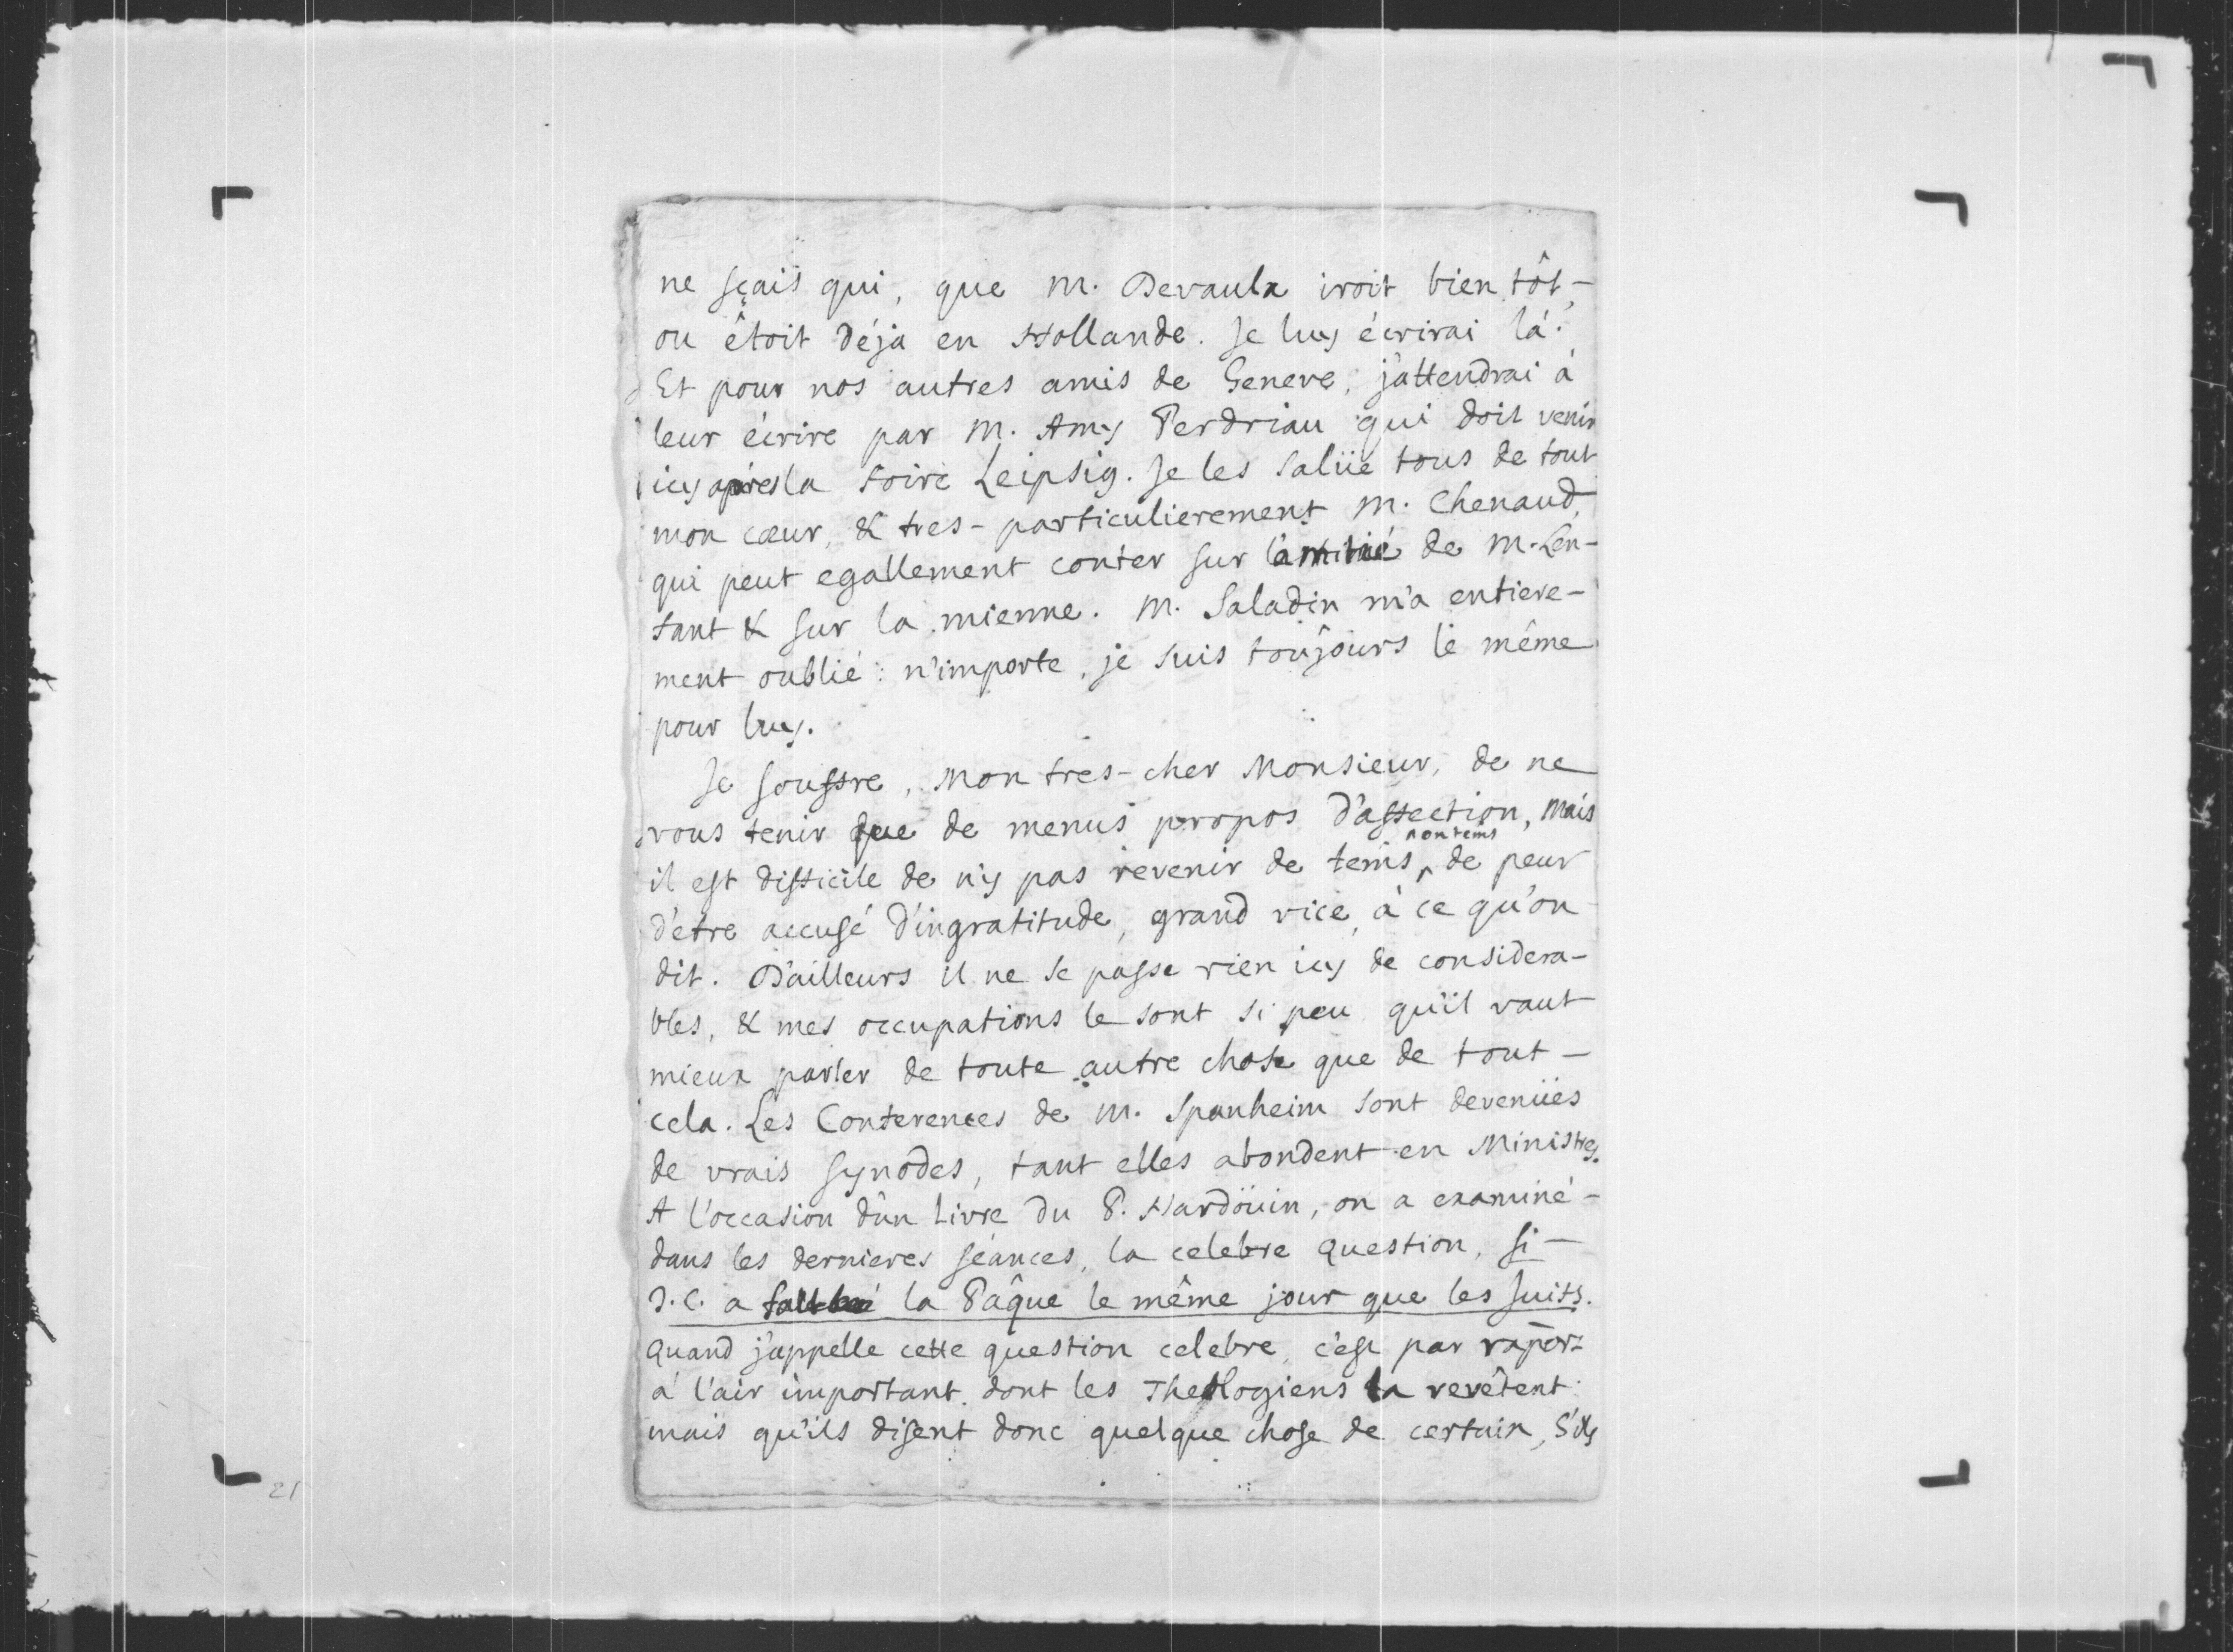 ne sçais qui, que M. Devaulx iroit bien tôt,
ou étoit déja en Hollande. Je luy écrirai là.
Et pour nos autres amis de Geneve, j'attendrai à
leur écrire par M. Amy Perdriau qui doit venir
icy apres la foire Leipsig. Je les salüe tous de tout
mon cœur, & tres-particulierement M. Chenaud,
qui peut egallement conter sur l'amitié de M. Len-
fant & sur la mienne. M. Saladin m'a entiere-
ment oublié: n'importe, je suis toûjours le même
pour luy.
Je souffre, Mon tres-cher Monsieur, de ne
vous tenir que de menus propos d'affection, mais
il est difficile de n'y pas revenir de tems
en tems
de peur
d'être accusé d'ingratitude, grand vice, à ce qu'on
dit. D'ailleurs il ne se passe rien icy de considera-
bles, & mes occupations le sont si peu qu'il vaut
mieux parler de toute autre chose que de tout
cela. Les Conferences de M. Spanheim sont devenües
de vrais synodes, tant elles abondent en Ministres.
A l'occasion d'un Livre du P. Hardöuin, on a examiné
dans les dernieres séances, la celebre question, si
J.C. a la Pâque le même jour que les Juifs.
Quand j'appelle cette question celebre, c'est par rapor
à l'air important dont les Theologiens la revêtent:
mais qu'ils disent donc quelque chose de certain, s'ils
21